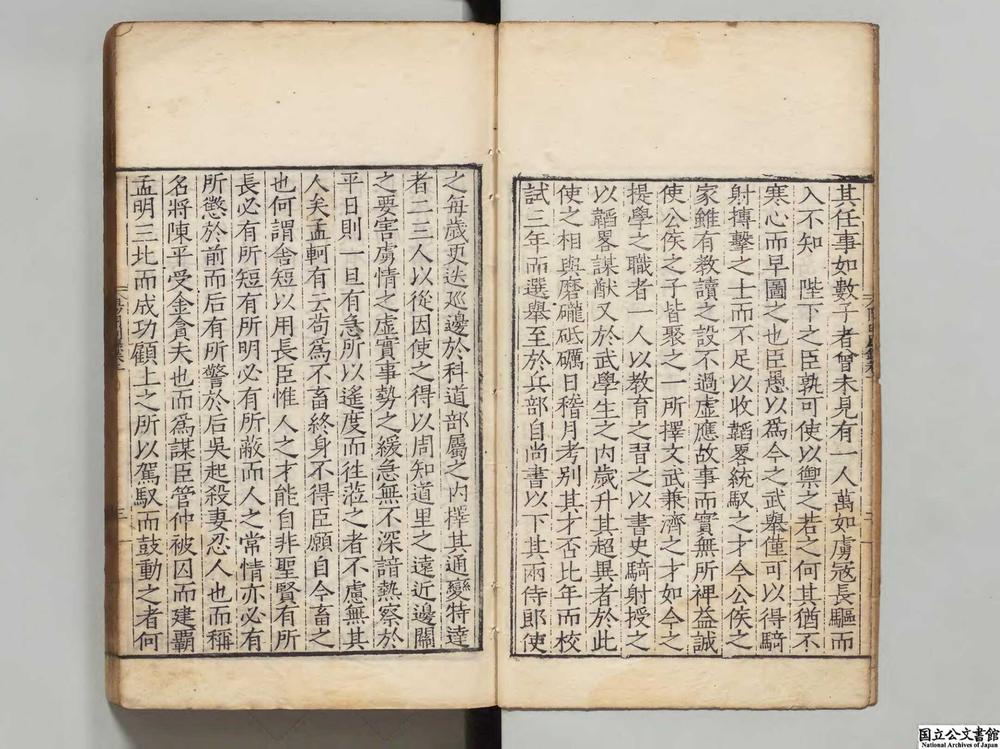 其任事如數子者曾未見有一人萬如虜冦長驅而
入不知　陛下之臣孰可使以禦之若之何其猶不
寒心而早圖之也臣愚以爲今之武舉僅可以得騎
射搏擊之士而不足以收韜畧統馭之才今公侯之
家雖有教讀之設不過虚應故事而實無所裨益誠
使公侯之子皆聚之一所擇文武兼濟之才如今之
提學之職者一人以教育之習之以書史騎射授之
以韜畧謀猷又於武學生之内歲升其超異者於此
使之相與磨礲砥礪日稽月考别其才否比年而校
試三年而選舉至於兵部自尚書以下其兩侍郎使
之每歲更迭廵邊於科道部屬之内擇其通變特達
者二三人以從因使之得以周知道里之遠近邊關
之要害虜情之虚實事勢之緩急無不深諳熟察於
平日則一旦有急所以遙度而徃蒞之者不慮無其
人矣孟軻有云苟爲不畜終身不得臣願自今畜之
也何謂舍短以用長臣惟人之才能自非聖賢有所
長必有所短有所明必有所蔽而人之常情亦必有
所懲於前而后有所警於后吳起殺妻忍人也而稱
名將陳平受金貪夫也而爲謀臣管仲被囚而建霸
孟明三北而成功顧上之所以駕馭而鼓動之者何
国立公文書館
National Archives of Japan